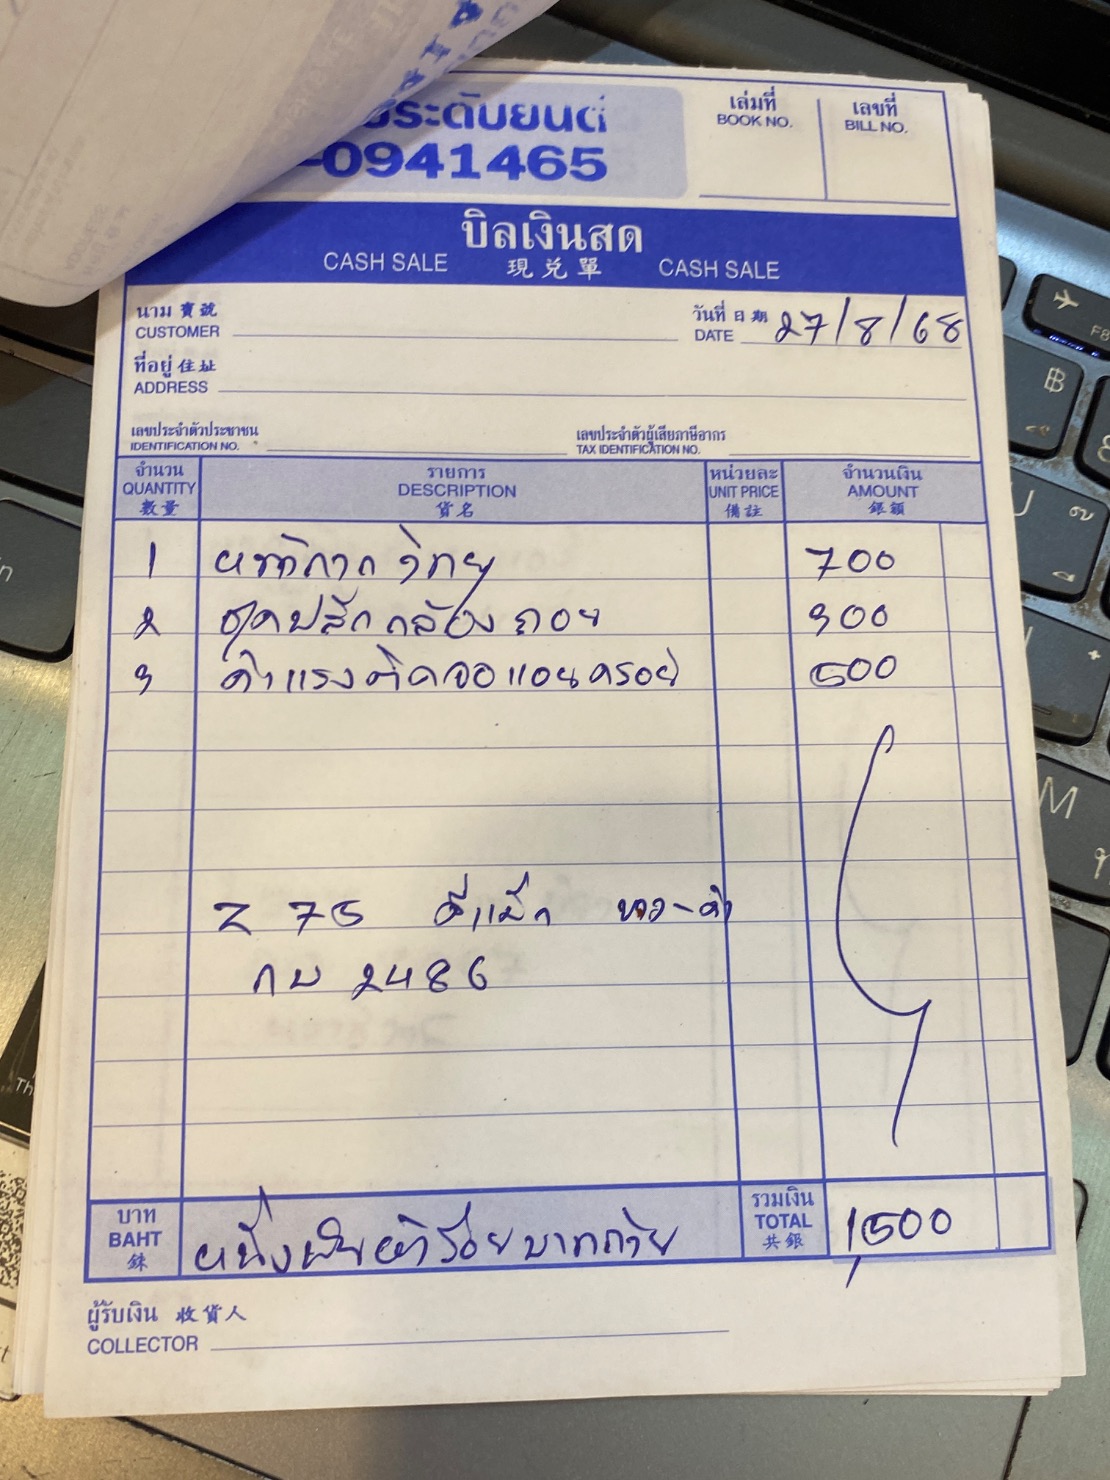 ประดับยนต์
-0941465
เล่มที่
BOOK NO.
เลขที่
BILL NO.
บิลเงินสด
CASH SALE 現兌單 CASH SALE
นาม 寶號
CUSTOMER
วันที่ 日期
DATE 27/8/68
ที่อยู่ 住址
ADDRESS
เลขประจำตัวประชาชน
IDENTIFICATION NO.
เลขประจำตัวผู้เสียภาษีอากร
TAX IDENTIFICATION NO.
จำนวน
QUANTITY
數量
รายการ
DESCRIPTION
貨名
หน่วยละ
UNIT PRICE
備註
จำนวนเงิน
AMOUNT
銀額
1 หน้ากากวิทยุ 700
2 ชุดปลั๊กกล้องถอย 300
3 ค่าแรงติดจอแอนดรอย 500
Z 75 ดีแม็ก ขาว-ดำ
กบ 2486
บาท
BAHT
銖
หนึ่งพันห้าร้อยบาทถ้วน
รวมเงิน
TOTAL
共銀
1,500
ผู้รับเงิน 收貨人
COLLECTOR